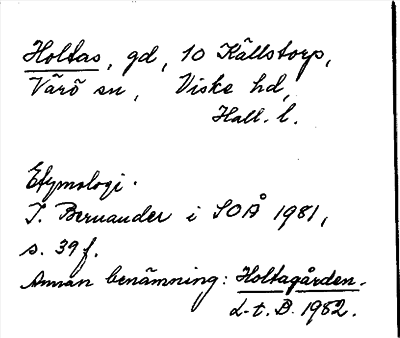 Holtas, gd, 10 Källstorp,
Värö sn, Viske hd,
Hall. l.
Etymologi.
I. Bernander i SOÅ 1981,
s. 39 f.
Annan benämning: Holtagården.
L-t. B. 1982.